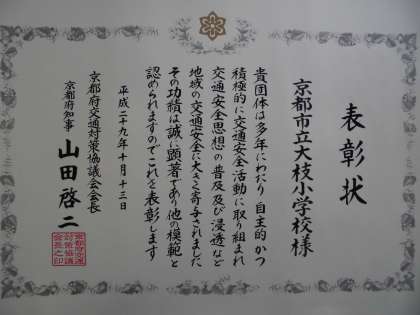 表彰状
京都市立大枝小学校様
貴団体は多年にわたり自主的かつ
積極的に交通安全活動に取り組まれ
交通安全思想の普及及び浸透など
地域の交通安全に大きく寄与されました
その功績は誠に顕著であり他の模範と
認められますのでこれを表彰します
平成二十九年十月十三日
京都府交通対策協議会会長
京都府知事 山田啓二